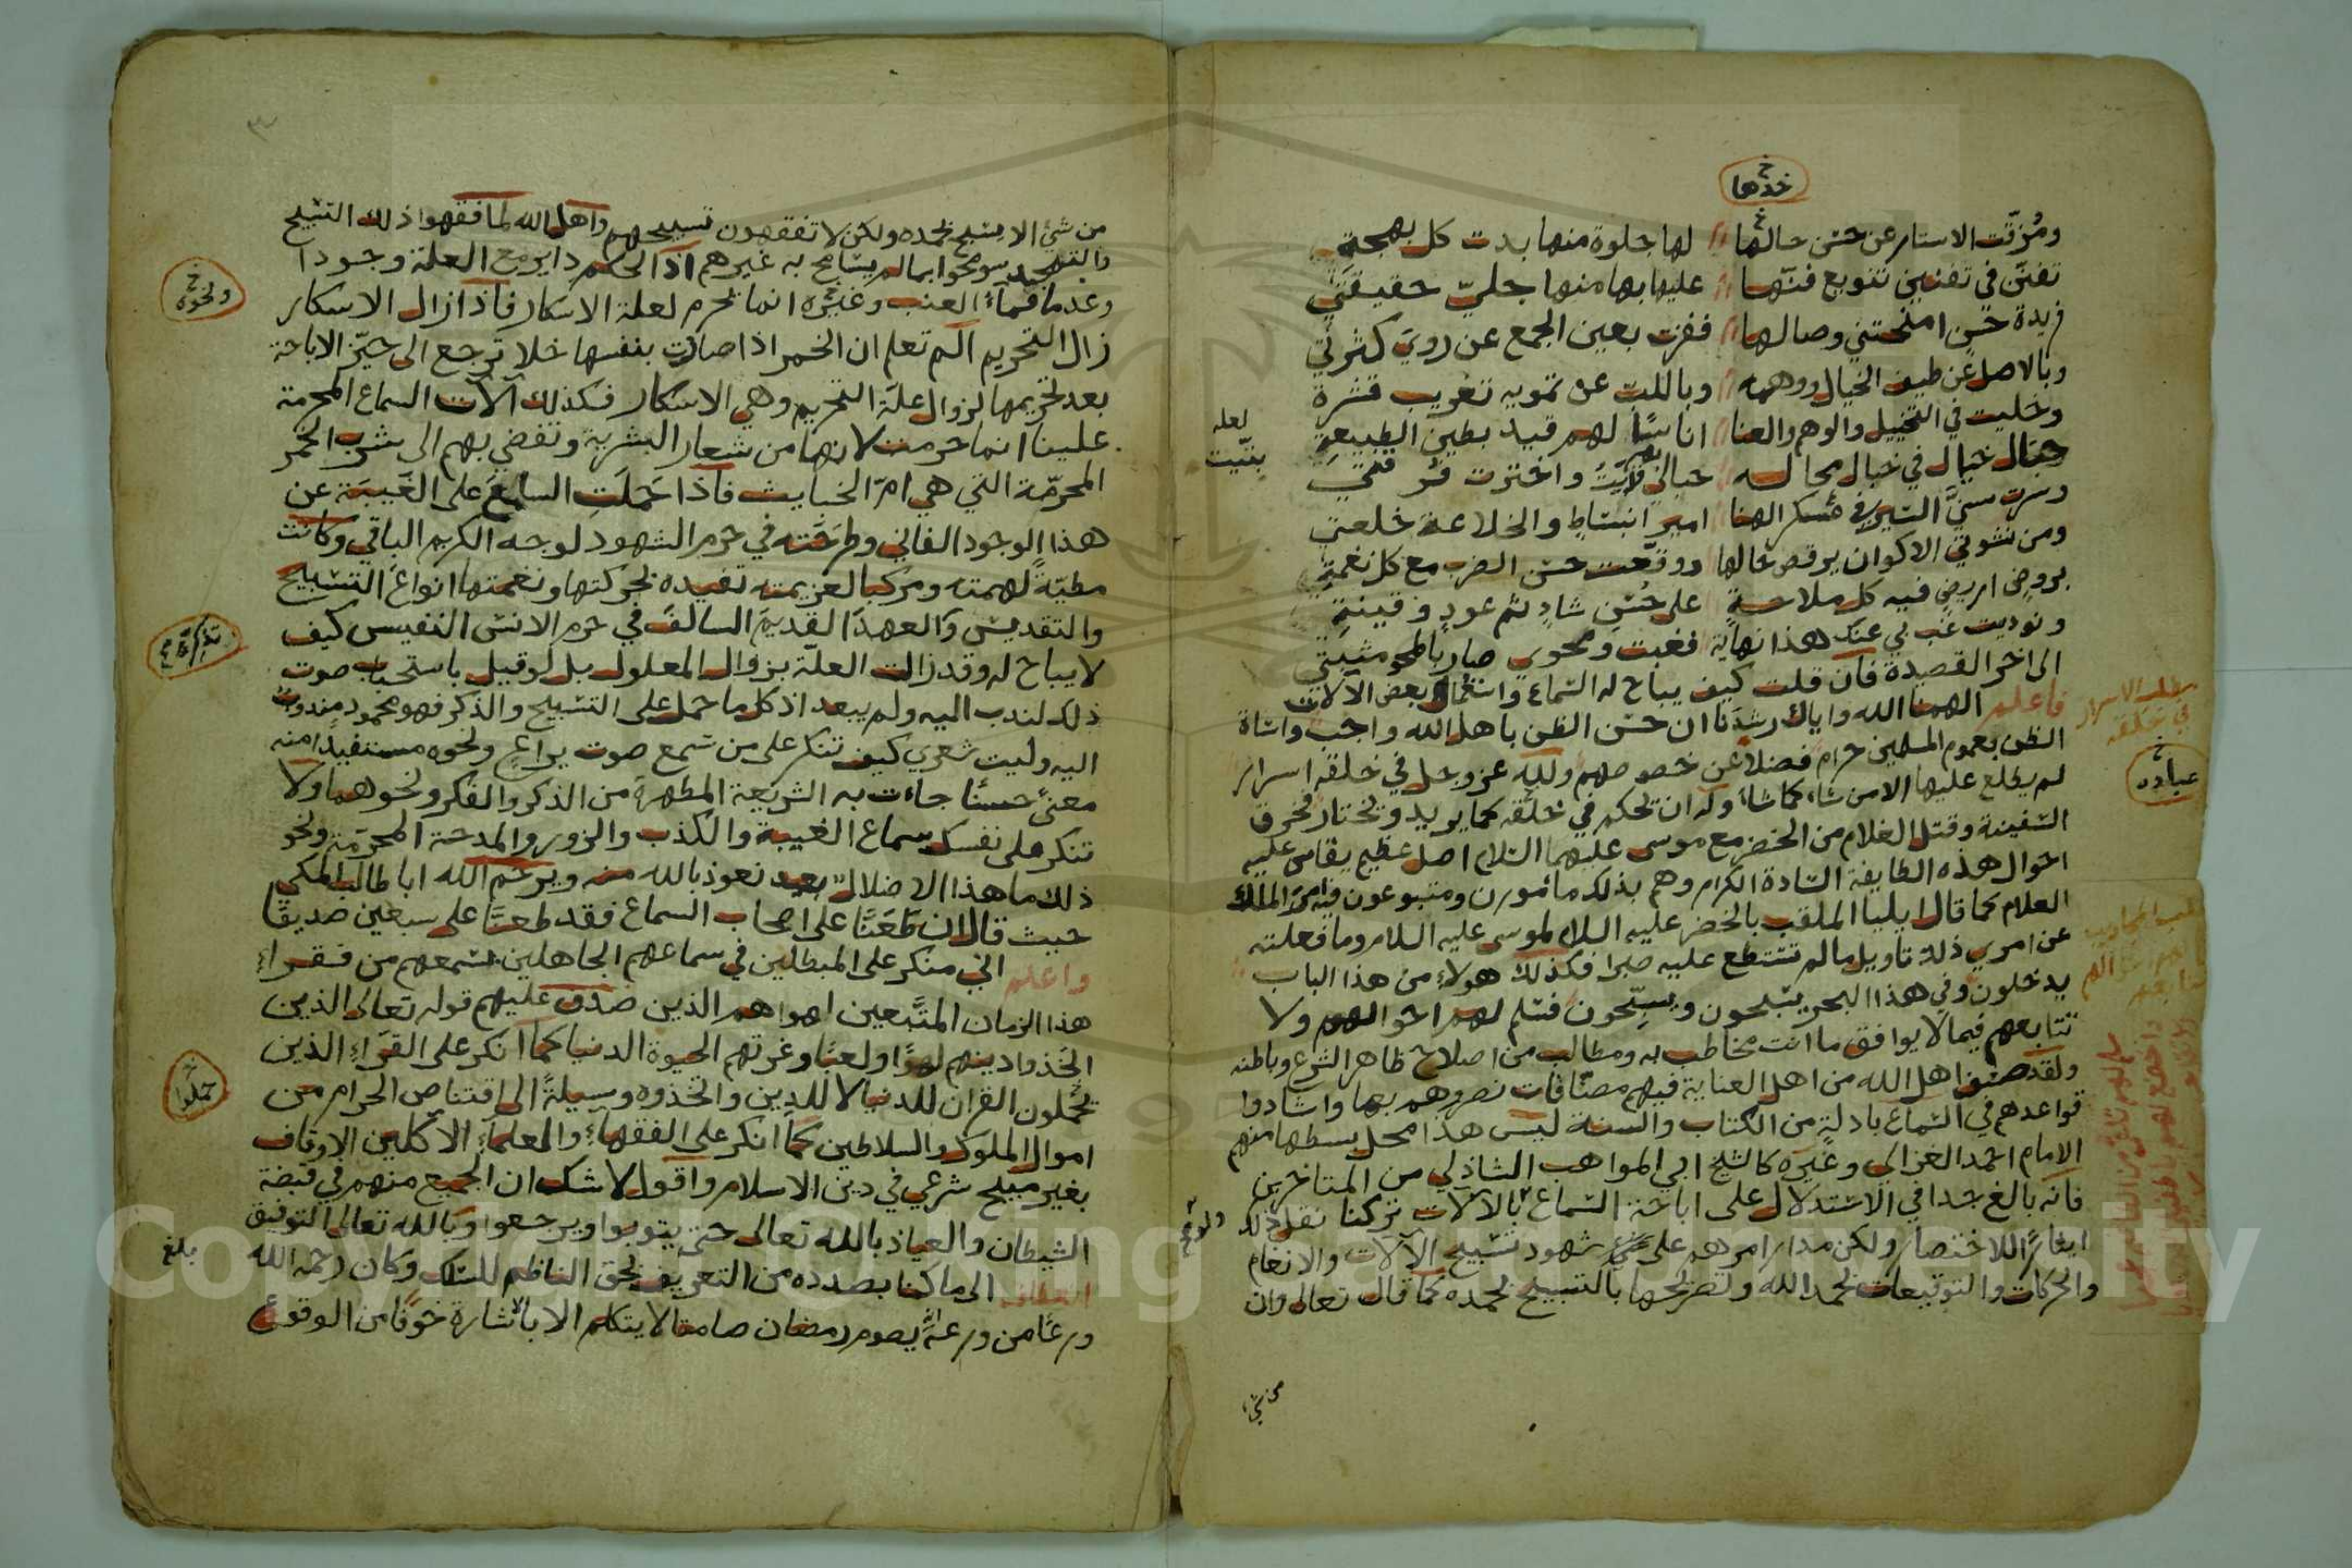 خدها
ومُزقّت الاستار عن حسن حالها لها جلوة منها بدت كل بهجة
تفنّن في تفنين تنويع فنّها عليها بها منها جليّ حقيقتي
فريدة حسن امنحتني وصالها ففزت بعين الجمع عن رويَ كثرتي
وبالاصل عن طيف الخيال ووهمه وباللب عن تمويه تغريب قشرة
وخليت في التخييل والوهم والعنا اناسًا لهم قيد بطين الطبيعةِ
خيال في خيال مجاله
وسرت سنيَّ السير في عسكر الهنا امير انبساطٍ والخلاعة خلعتي
ومن نشوتي الاكوان يرقص حالها ووقّعت حسن الضرب مع كل نغمةٍ
بروضٍ اريضٍ فيه كل ملاحةٍ على حُسْنِ شادٍ ثم عودٍ وقينةِ
ونوديت غب بي عنك هذا نهاية فغبت ومحوي صار بالمحو مثبتي
الى اخر القصيدة فان قلت كيف يباح له السماع واستعمال بعض الالات
فاعلم الهمنا الله واياك رشدنا ان حسن الظن باهل الله واجب واساة
الظن بعموم المسلمين حرام فضلا عن خصوصهم ولله عز وجل في خلقه اسرار
لم يطلع عليها الا من شاء كما شاء وله ان يحكم في خلقه كما يريد ويختار فخرق
السفينة وقتل الغلام من الخضر مع موسى عليهما السلام اصل عظيم يقاس عليه
احوال هذه الطايفة السادة الكرام وهم بذلك مأمورن ومتبوعون فيه من الملك
العلام كما قال ايليا الملقب بالخضر عليه السلام لموسى عليه السلام وما فعلته
عن امري ذلك تاويل ما لم تستطع عليه صبرا فكذلك هولاء من هذا الباب
يدخلون وفي هذا البحر يسبحون ويسيحون فسلم لهم احوالهم ولا
تتابعهم فيما لا يوافق ما انت مخاطب به ومطالب من اصلاح ظاهر الشرع وباطنه
ولقد صنف اهل الله من اهل العناية فيهم مصنّافات نصروهم بها واشادوا
قواعدهم في السماع بادلةٍ من الكتاب والسنة ليس هذا محل بسطها منهم
الامام احمد الغزالي وغيره كالشيخ ابي المواهب الشاذلي من المتاخرين
فانه بالغ جدا في الاستدلال على اباحة السماع بالآلات تركنا نقل ذلك
ايثارًا للاختصار ولكن مدار امرهم على شهود تسبيح الآلات والانغام
والحركات والتوقيعات بحمد الله وتصريحها بالتسبيح بحمده كما قال تعالى وان
من شي
لعله
بنيّت
عباده
من شئ الا يسبح بحمده ولكن لا تفقهون تسبيحهم واهل الله لما فقهوا ذلك التسبيح
والتمجيد سومحوا بما لم يسامح به غيرهم اذ الحكم داير مع العلة وجودا
وعدما فماء العنب وغيره انما يحرم لعلة الاسكار فاذا زال الاسكار
زال التحريم الم تعلم ان الخمر اذا صارت بنفسها خلا ترجع الى حيّز الاباحة
بعد تحريمها لزوال علة التحريم وهي الاسكار فكذلك آلآت السماع المحرمة
علينا انما حرمت لانها من شعار البشرية وتفضي بهم الى شرب الخمر
المحرمّة التي هي امّ الخبايث فاذا حَملَتِ السامعَ على الغَيبَة عن
هذا الوجود الفاني وطرحَته في حرم الشهود لوجه الكريم الباقي وكانت
مطيّةً لهمته ومركبا لعزيمته تفيده بحركتها ونغمتها انواعَ التسبيح
والتقديس والعهدَ القديمَ السالفَ في حرم الانس النفيس كيف
لا يباح له وقد زالت العلة بزوال المعلول بل لو قيل باستحباب صوت
ذلك لندب اليه ولم يبعد اذ كل ما حمل على التسبيح والذكر فهو محمود مندوب
اليه وليت شعري كيف تنكر على من سمع صوت يراعٍ ونحوه مستفيدا منه
معنىً حسنًا جاءت به الشريعة المطهرة من الذكر والفكر ونحوهما ولا
تنكر على نفسك سماع الغيبة والكذب والزور والمدحة المحرّمة ونحو
ذلك ما هذا الا ضلال بعيد نعوذ بالله منه ويرحم الله ابا طالب المكي
حيث قال ان طعَنّا على اصحاب السماع فقد طعنّا على سبعين صديقًا
واعلم اني منكر على المبطلين في سماعهم الجاهلين بسمعهم من فقراء
هذا الزمان المتّبعين اهواهم الذين صدق عليهم قوله تعالى الذين
اتخذوا دينهم لهوًا ولعبًا وغرتهم الحيوة الدنيا كما انكر على القرّاء الذين
يحملون القران للدنيا لا للدين واتخذوه وسيلةً الى اقتناص الحرام من
اموال الملوك والسلاطين كما انكر على الفقهاء والمعلماء الآكلين الاوقاف
بغير مبيح شرعي في دين الاسلام واقول لا شك ان الجميع منهم في قبضة
الشيطان والعياذ بالله تعالى حتى يتوبوا ويرجعوا وبالله تعالى التوفيق
الى ما كنا بصدده من التعريف بحق الناظم للسلك وكان رحمه الله
ورعًا من ورعه انه يصوم رمضان صامتا لا يتكلم الا باشارة خوفًا من الوقوع
ونحوه
حملوا
بلغ
Copyright © King Saud University